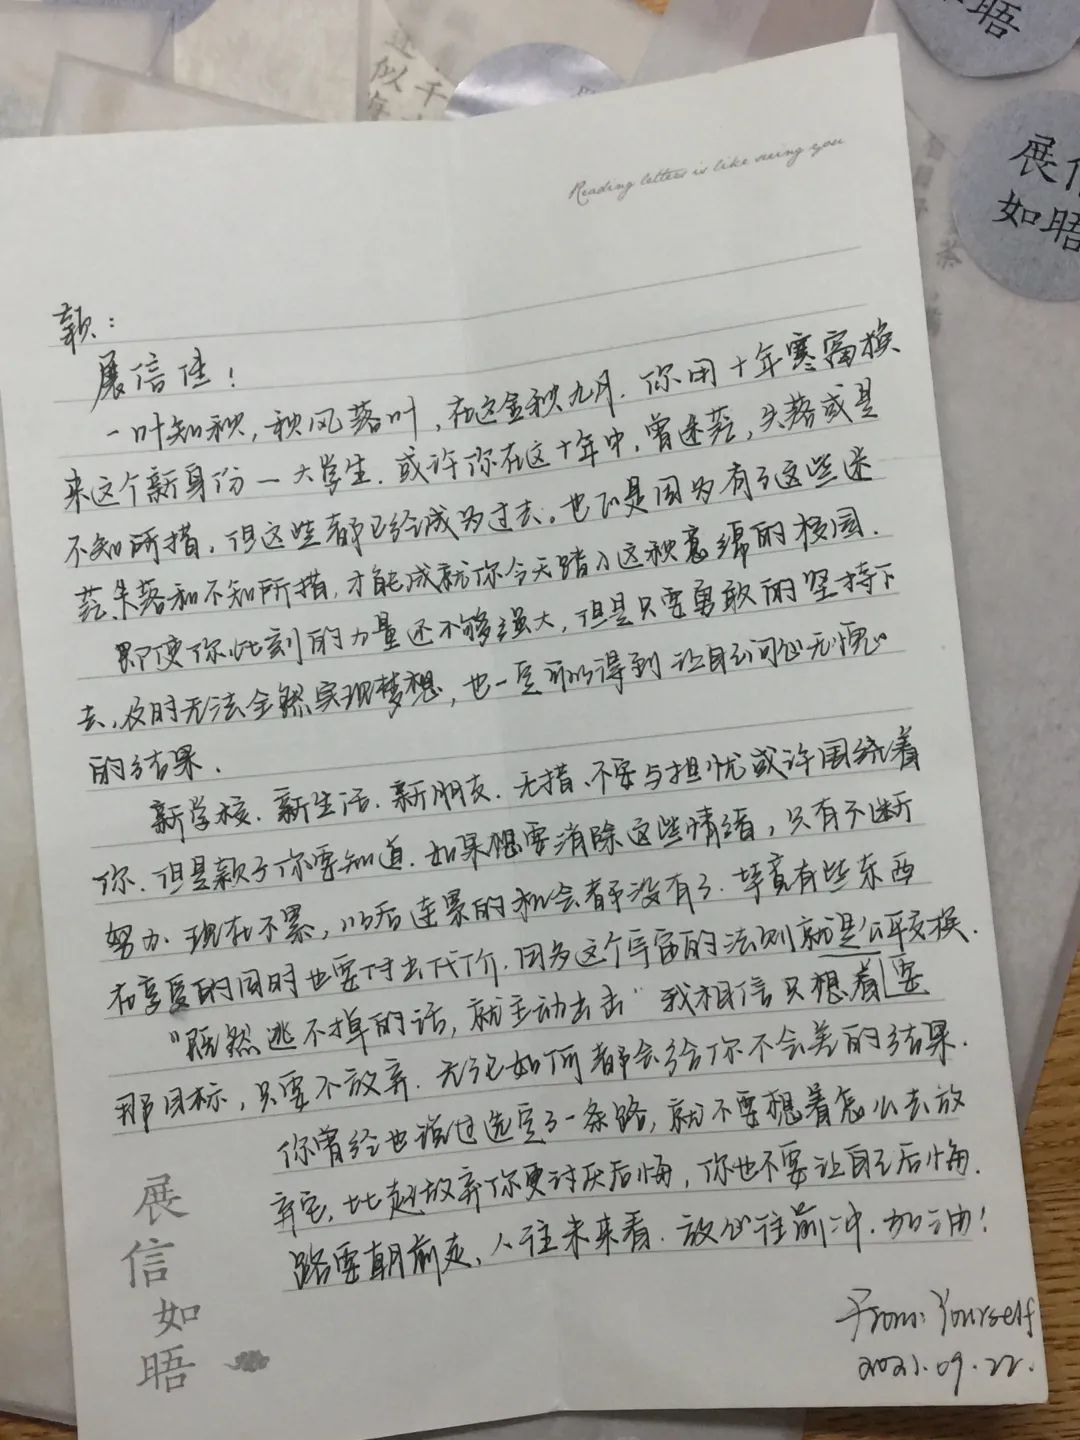 近
似
年
千
展信
如晤
晤
Reading letters is like seeing you
颖：
展信佳！
一叶知秋，秋风落叶，在这金秋九月．你用十年寒窗换
来这个新身份—大学生．或许你在这十年中，曾迷茫，失落或是
不知所措．但这些都已经成为过去．也正是因为有了这些迷
茫失落和不知所措．才能成就你今天踏入这秋意绵的校园．
即使你此刻的力量还不够强大，但是只要勇敢的坚持下
去．及时无法全然实现梦想，也一定可以得到让自己问心无愧
的结果．
新学校．新生活．新朋友．无措、不安与担忧或许围绕着
你．但是颖子你要知道．如果想要消除这些情绪，只有不断
努力．现在不累，以后连累的机会都没有了．毕竟有些东西
在享受的同时也要付出代价．因为这个宇宙的法则就是公平交换．
“既然逃不掉的话，就主动出击”我相信只想着要
那目标，只要不放弃．无论如何都会给你不会差的结果．
你曾经也说过选定了一条路，就不要想着怎么去放
弃它．比起放弃你更讨厌后悔，你也不要让自己后悔．
路要朝前走、人往未来看．放心往前冲．加油！
From: Yourself
2021.09.22.
展
信
如
晤